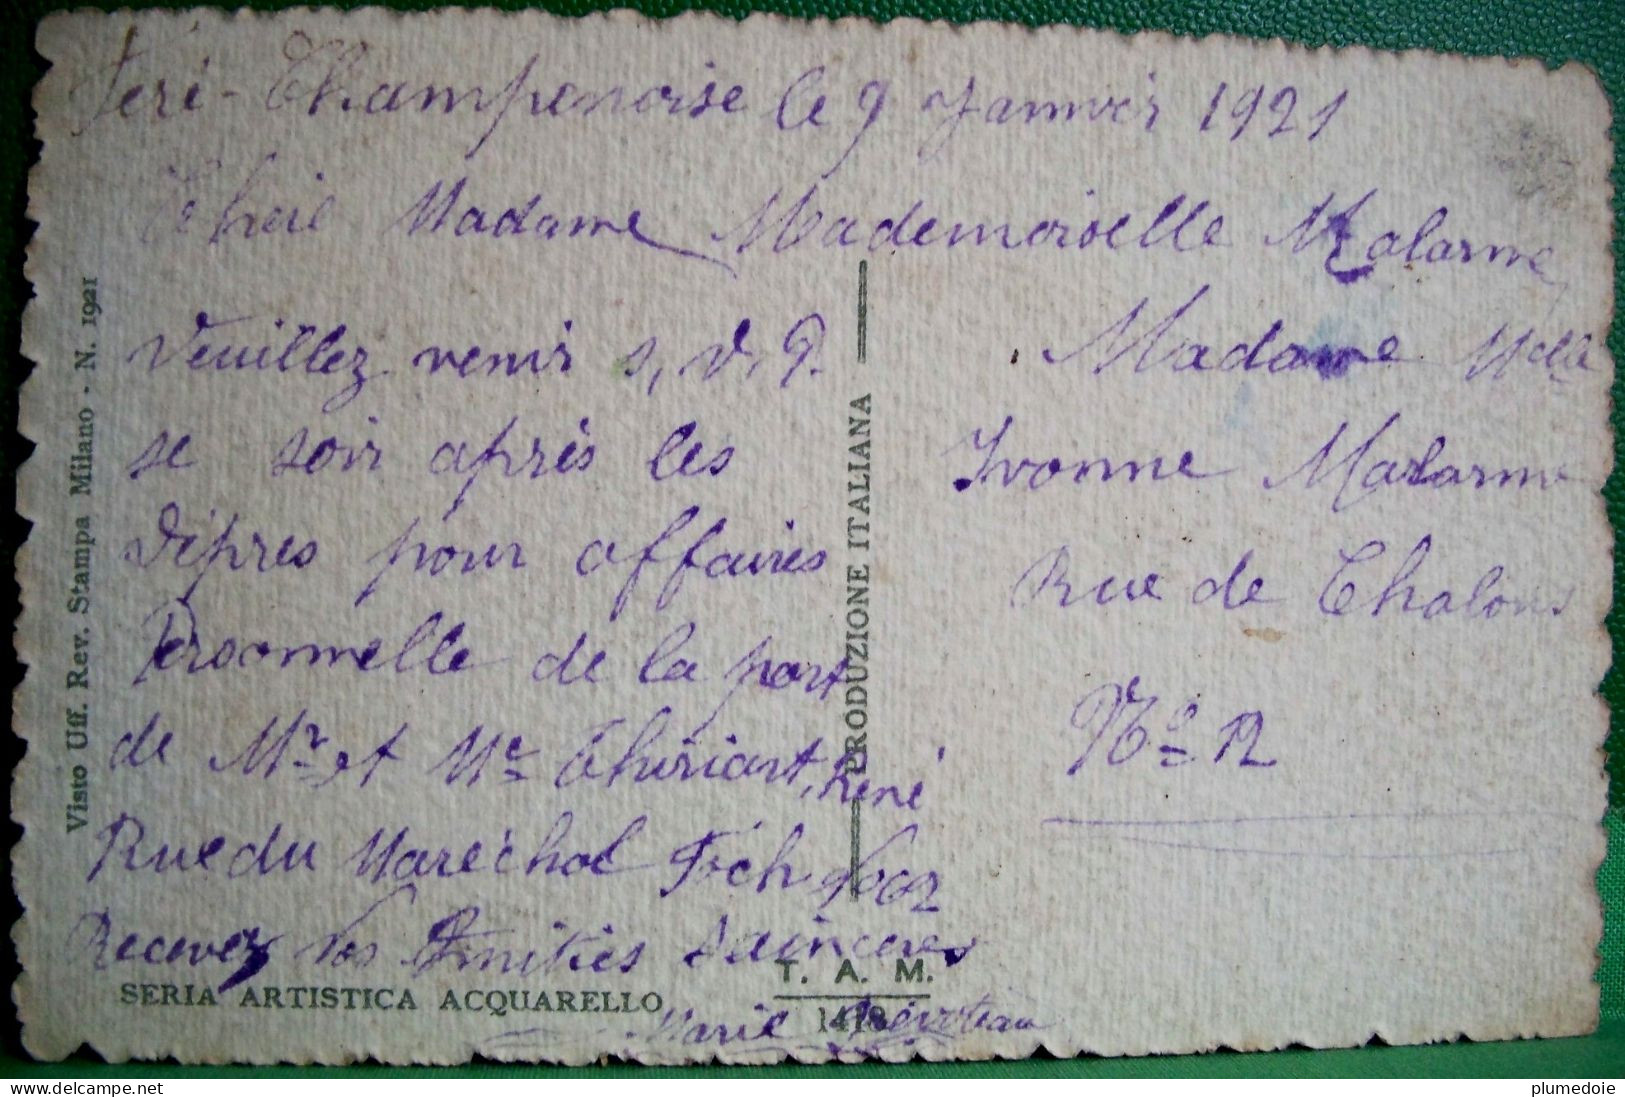 Feré-Champenoise le 9 Janvier 1921
Cheie Madame Mademoiselle Malarme
Veuillez venir s, v, P.
se soir après les
Vêpres pour affaires
Personnelle de la part
de Mr et Me Thiriart, René
Rue du Maréchal Foch
Recevez Nos Amitiés Sainceres
Marie
Madame Melle
Yvonne Malarme
Rue de Chalons
No 12
Visto Uff. Rev. Stampa Milano - N. 1921
PRODUZIONE ITALIANA
SERIA ARTISTICA ACQUARELLO
T. A. M.
1418
plumedoie